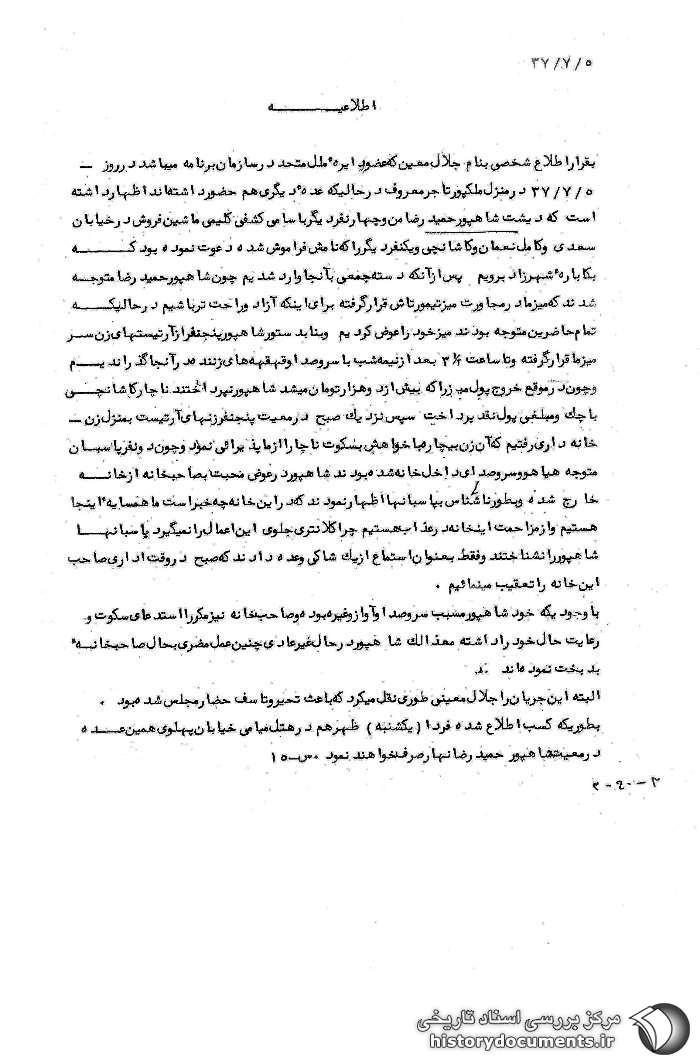 ۳۷/۷/۵
اطلاعیـــــه
بقرار اطلاع شخصی بنام جلال معین که عضو دایره ملل متحد در سازمان برنامه میباشد در روز –
۳۷/۷/۵ در منزل ملکپور تاجر معروف در حالیکه عده دیگری هم حضور داشته اند اظهار داشته
است که دیشب شاهپور حمید رضا من و چهار نفر دیگر با سامی کشفی کلیمی ماشین فروش در خیابان
سعدی و کامل نعمان و کاشانچی و یکنفر دیگر را که نامش فراموش شده دعوت نموده بود که
بکاباره شهرزاد برویم پس از آنکه دسته جمعی بآنجا وارد شدیم چون شاهپور حمید رضا متوجه
شدند که میز ما در مجاورت میز تیمورتاش قرار گرفته برای اینکه آزاد و راحت تر باشیم در حالیکه
تمام حاضرین متوجه بودند میز خود را عوض کردیم و بنا بدستور شاهپور پنجنفر از آرتیستهای زن سر
میز ما قرار گرفته و تا ساعت ۳/۵ بعد از نیمه شب با سر و صدا و قهقهه های زننده در آنجا گذراندیم
و چون در موقع خروج پول میز را که بیش از دو هزار تومان میشد شاهپور نپرداختند ناچار کاشانچی
با چک و مبلغی پول نقد پرداخت سپس نزدیک صبح در معیت پنجنفر زنهای آرتیست بمنزل زن –
خانه داری رفتیم که آن زن بیچاره با خواهش بسکوت ناچار از ما پذیرائی نمود و چون دو نفر پاسبان
متوجه هیاهو و سر و صدای داخل خانه شده بودند شاهپور در عوض محبت بصاحبخانه از خانه
خارج شده و بطور ناشناس بپاسبانها اظهار نمودند که در این خانه چه خبر است ما همسایه اینجا
هستیم و از مزاحمت اینخانه در عذاب هستیم چرا کلانتری جلوی این اعمال را نمیگیرد پاسبانها
شاهپور را نشناختند و فقط بعنوان استماع از یک شاکی وعده دادند که صبح در وقت اداری صاحب
این خانه را تعقیب مینمائیم .
با وجودیکه خود شاهپور مسبب سر و صدا و آواز و غیره بوده و صاحب خانه نیز مکرر استدعای سکوت و
رعایت حال خود را داشته معذالک شاهپور در حال غیر عادی چنین عمل مضری بحال صاحبخانه
بدبخت نموده اند .
البته این جریان را جلال معینی طوری نقل میکرد که باعث تحیر و تاسف حضار مجلس شده بود .
بطوریکه کسب اطلاع شده فردا (یکشنبه) ظهر هم در هتل میامی خیابان پهلوی همین عده
در معیت شاهپور حمید رضا نهار صرف خواهند نمود .س-۱۵
۳-۲۰-۲
مرکز بررسی اسناد تاریخی
historydocuments.ir